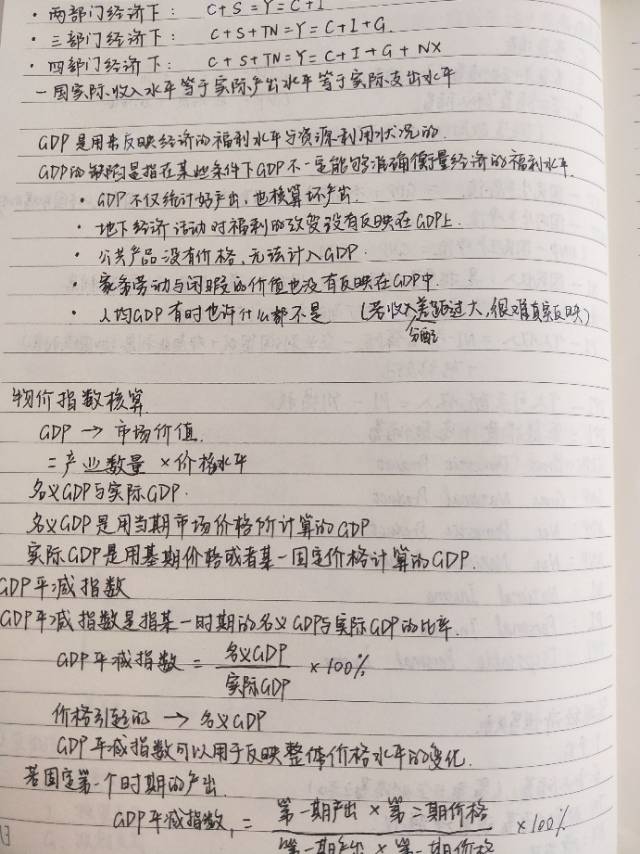 · 两部门经济下: C+S=Y=C+I
· 三部门经济下: C+S+TN=Y=C+I+G.
· 四部门经济下: C+S+TN=Y=C+I+G+NX
一国实际收入水平等于实际产出水平等于实际支出水平
GDP是用来反映经济的福利水平与资源利用状况的.
GDP的缺陷是指在某些条件下GDP不一定能够准确衡量经济的福利水平.
· GDP不仅统计好产出,也核算坏产出.
· 地下经济活动对福利的改变没有反映在GDP上.
· 公共产品没有价格,无法计入GDP.
· 家务劳动与闲暇的价值也没有反映在GDP中.
· 人均GDP有时也许什么都不是 (若收入分配差距过大,很难真实反映)
物价指数核算
GDP → 市场价值.
= 产业数量 × 价格水平
名义GDP与实际GDP.
名义GDP是用当期市场价格所计算的GDP
实际GDP是用基期价格或者某一固定价格计算的GDP.
GDP平减指数
GDP平减指数是指某一时期的名义GDP与实际GDP的比率.
GDP平减指数 = 名义GDP / 实际GDP × 100%
价格引起的 → 名义GDP
GDP平减指数可以用于反映整体价格水平的变化.
若固定第一个时期的产出.
GDP平减指数1 = 第一期产出 × 第二期价格 / 第一期产出 × 第一期价格 × 100%